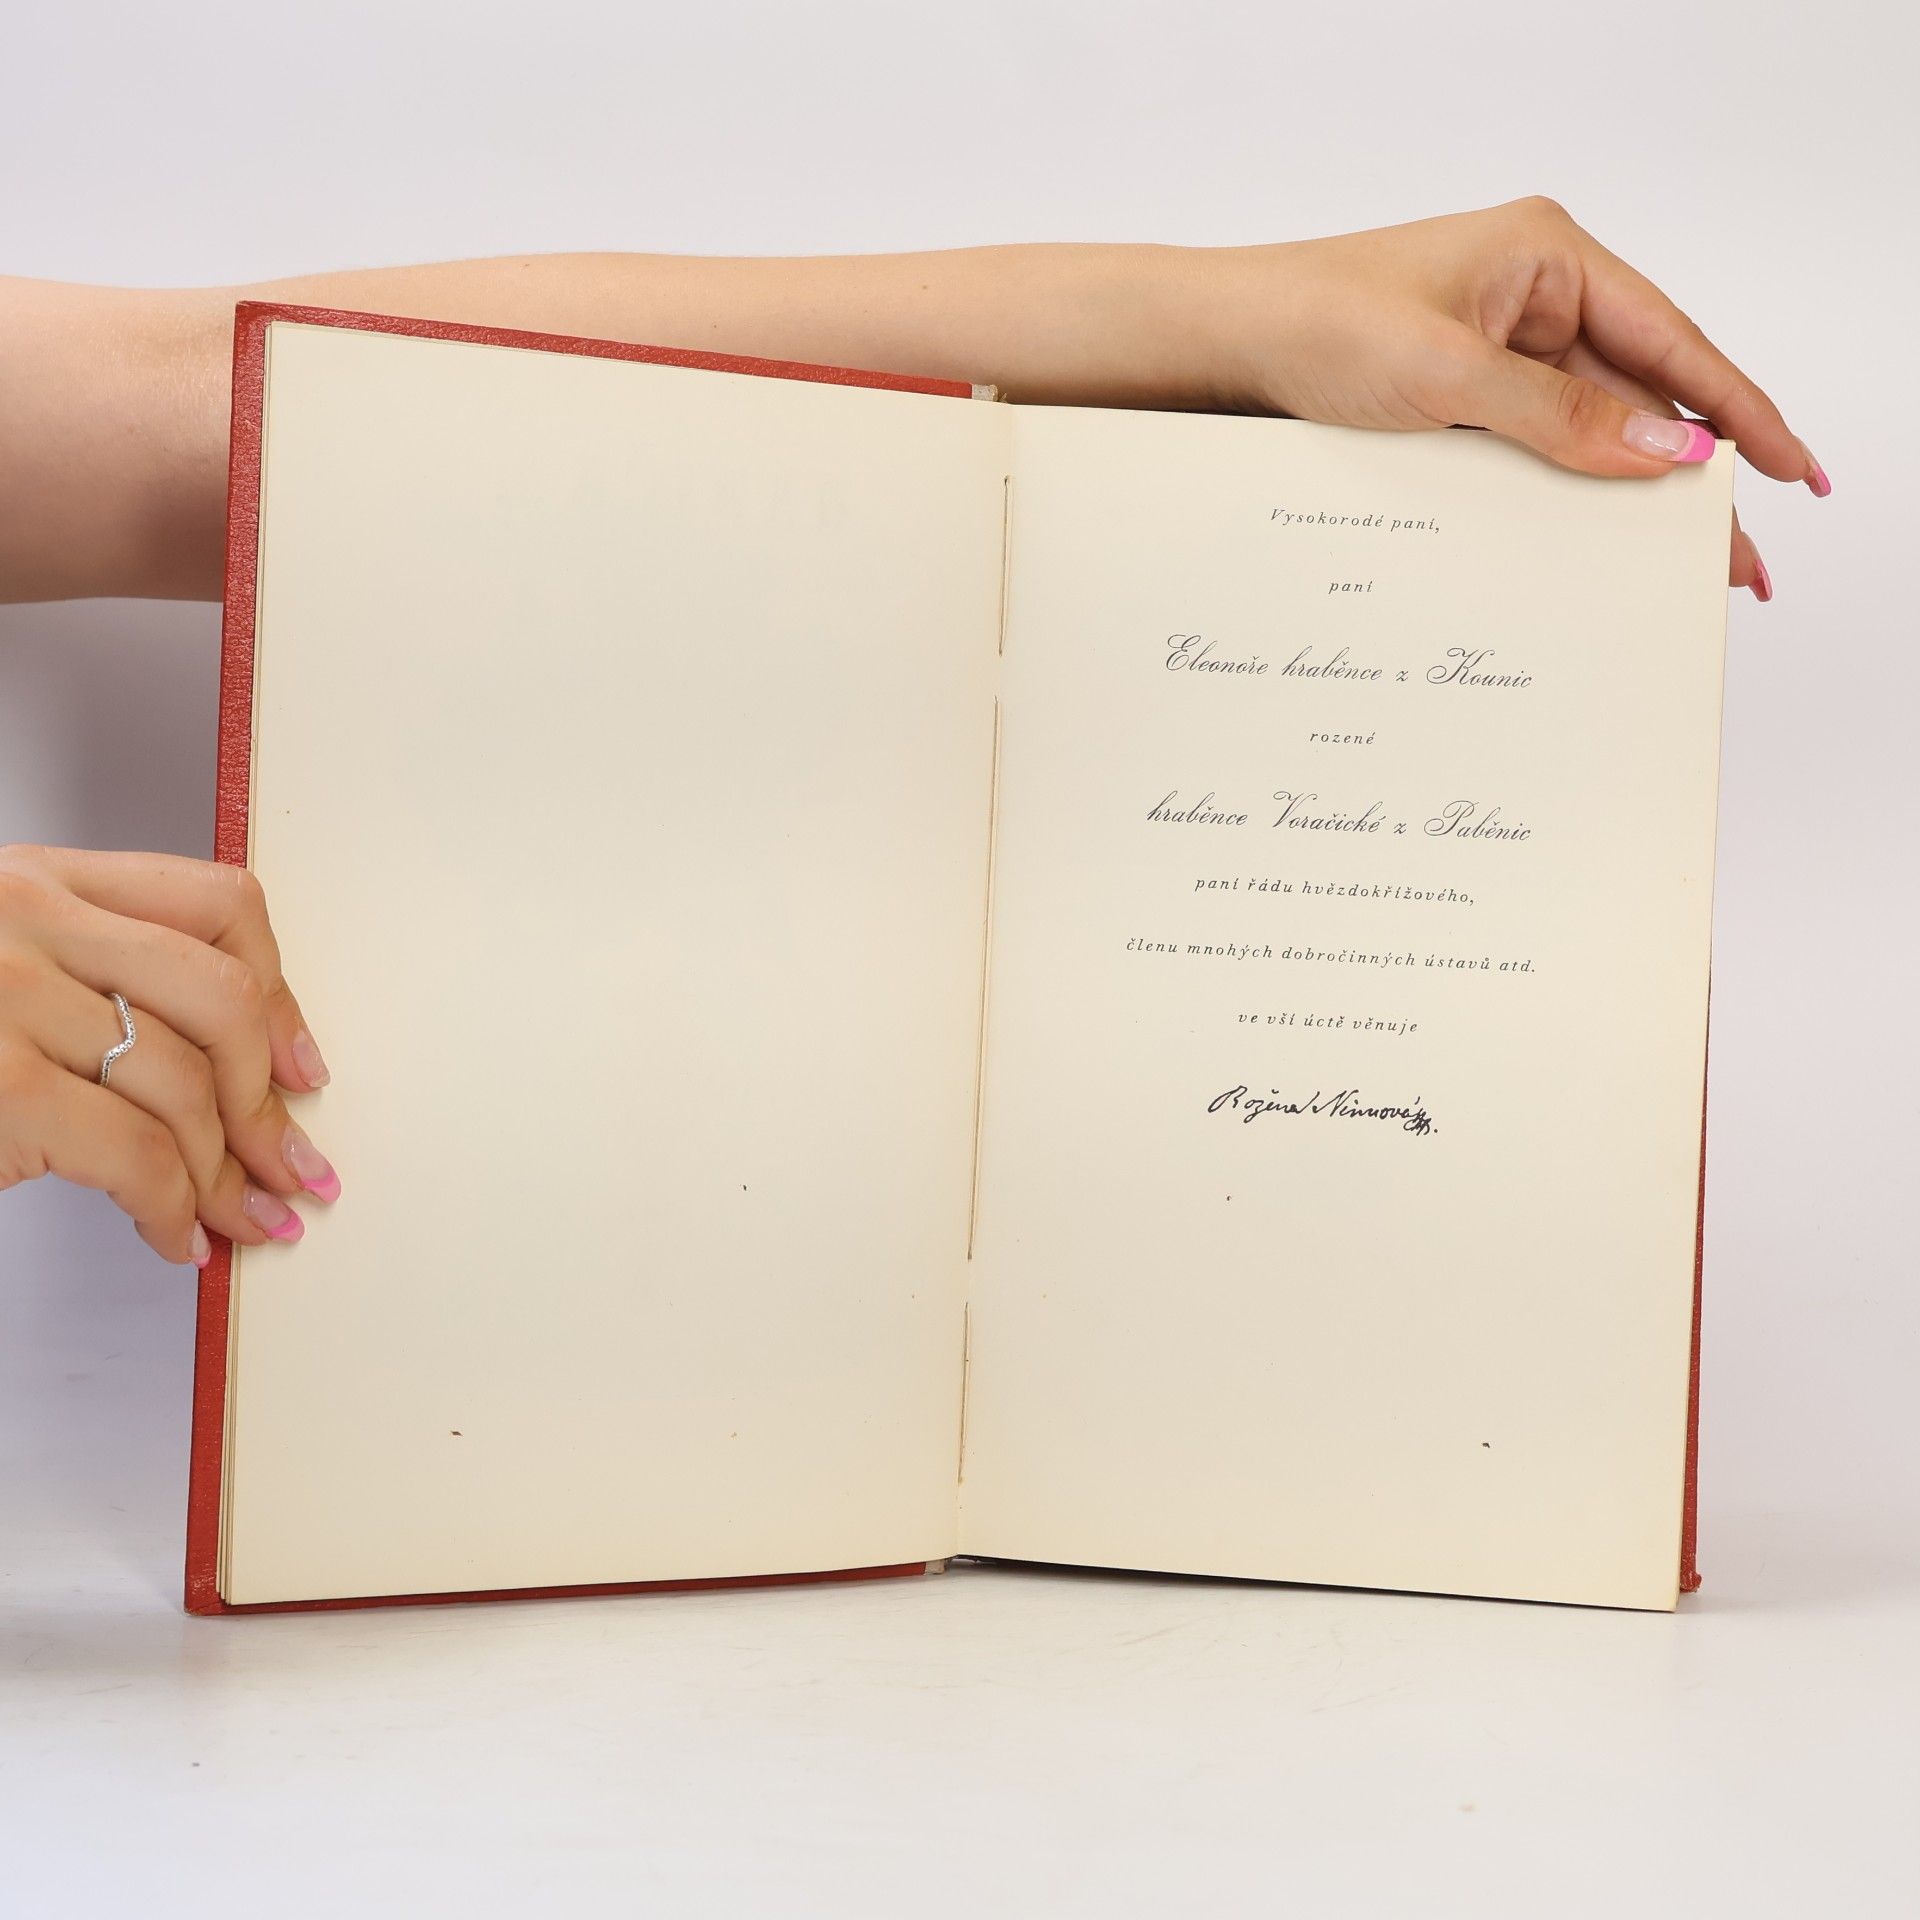 Vysokorodé paní,
paní
Eleonoře hraběnce z Kounic
rozené
hraběnce Voračické z Paběnic
paní řádu hvězdokřížového,
členu mnohých dobročinných ústavů atd.
ve vší úctě věnuje
Božena Němcová